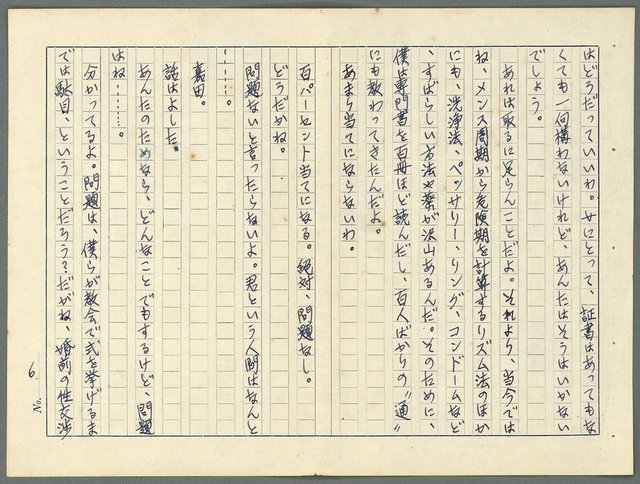 はどうだっていいわ。女にとって、証書はあってもな
くても一向構わないけれど、あんたはそうはいかない
でしょう。
あれは取るに足らんことだよ。それより、当今では
ね、メンス周期から危険期を計算するリズム法のほか
にも、洗浄法、ペッサリー、リング、コンドームなど
、すばらしい方法や薬が沢山あるんだ。そのために、
僕は専門書を百冊ほど読んだし、百人ばかりの〝通〟
にも教わってきたんだよ。
あまり当てにならないわ。
百パーセント当てになる。絶対、問題なし。
どうだかね。
問題ないと言ったらないよ。君という人間はなんと
………。
嘉田。
話はよした。
あんたのためなら、どんなことでもするけど、問題
はね………。
分かってるよ。問題は、僕らが教会で式を挙げるま
では駄目、ということだろう？だがね、婚前の性交渉
6
No.